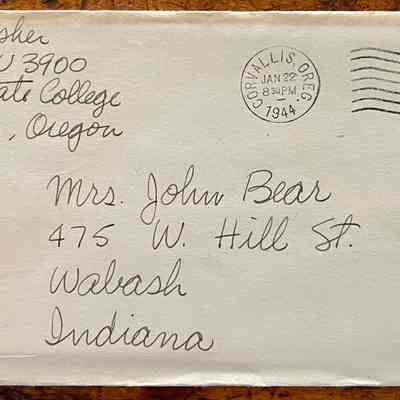 sher
U 3900
ate College
, Oregon
CORVALLIS, OREG.
JAN 22
8 30 PM
1944
Mrs. John Bear
475 W. Hill St.
Wabash
Indiana